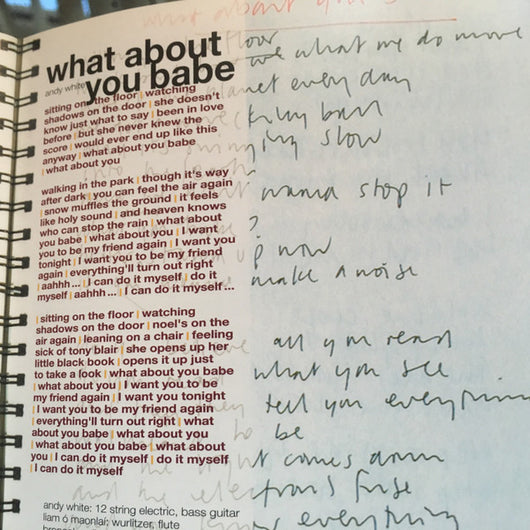 what about you
what about
you babe
andy white
sitting on the floor | watching
shadows on the door | she doesn't
know just what to say | been in love
before | but she never knew the
score | would ever end up like this
anyway | what about you babe
| what about you
walking in the park | though it's way
after dark | you can feel the air again
| snow muffles the ground | it feels
like holy sound | and heaven knows
who can stop the rain | what about
you babe | what about you | I want
you to be my friend again | I want you
tonight | I want you to be my friend
again | everything'll turn out right
| aahhh ... | I can do it myself | do it
myself | aahhh ... | I can do it myself ...
| sitting on the floor | watching
shadows on the door | noel's on the
air again | leaning on a chair | feeling
sick of tony blair | she opens up her
little black book | opens it up just
to take a look | what about you babe
| what about you | I want you to be
my friend again | I want you tonight
| I want you to be my friend again
| everything'll turn out right | what
about you babe | what about you
| what about you babe | what about
you | I can do it myself | do it myself
| I can do it myself
andy white: 12 string electric, bass guitar
liam ó maonlaí: wurlitzer, flute
floor
we what we do move
planet every day
ball
slow
wanna stop it
?
up now
make a noise
all you read
what you see
tell you everything
to be
comes down
and the electrons fuse
everything